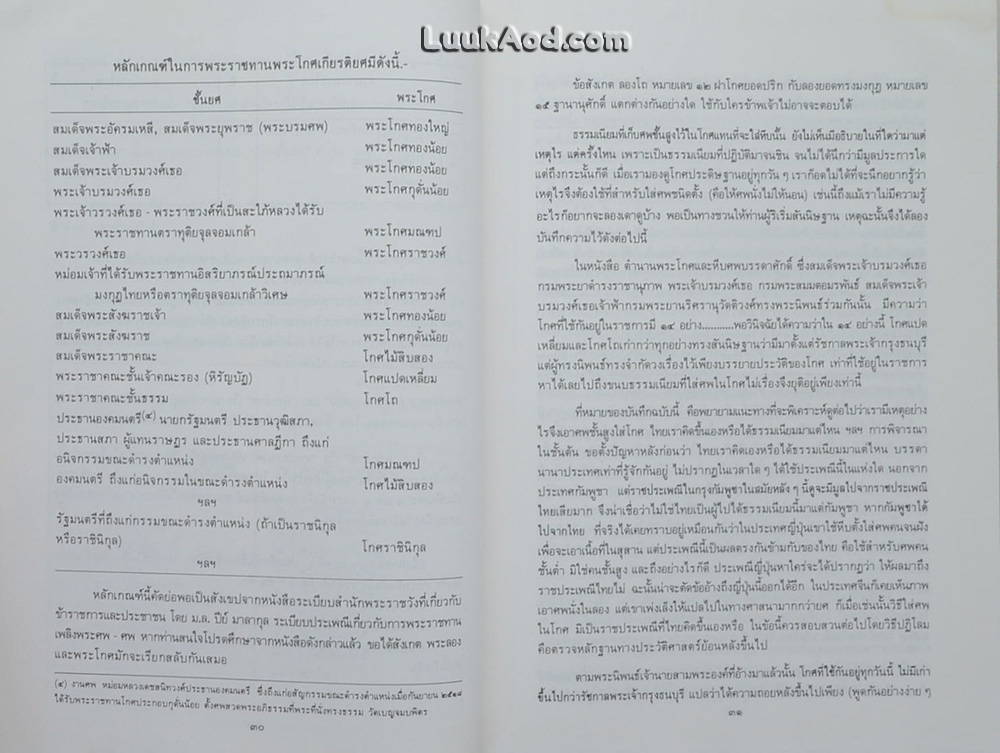 LuukAod.com
หลักเกณฑ์ในการพระราชทานพระโกศเกียรติยศมีดังนี้.-
ชั้นยศ พระโกศ
สมเด็จพระอัครมเหสี, สมเด็จพระยุพราช (พระบรมศพ) พระโกศทองใหญ่
สมเด็จเจ้าฟ้า พระโกศทองน้อย
สมเด็จพระเจ้าบรมวงศ์เธอ พระโกศทองน้อย
พระเจ้าบรมวงศ์เธอ พระโกศกุดั่นน้อย
พระเจ้าวรวงศ์เธอ - พระราชวงศ์ที่เป็นสะใภ้หลวงได้รับ
พระราชทานตราทุติยจุลจอมเกล้า พระโกศมณฑป
พระวรวงศ์เธอ พระโกศราชวงศ์
หม่อมเจ้าที่ได้รับพระราชทานอิสริยาภรณ์ประถมาภรณ์
มงกุฎไทยหรือตราทุติยจุลจอมเกล้าวิเศษ พระโกศราชวงศ์
สมเด็จพระสังฆราชเจ้า พระโกศทองน้อย
สมเด็จพระสังฆราช พระโกศกุดั่นน้อย
สมเด็จพระราชาคณะ โกศไม้สิบสอง
พระราชาคณะชั้นเจ้าคณะรอง (หิรัญบัฏ) โกศแปดเหลี่ยม
พระราชาคณะชั้นธรรม โกศโถ
ประธานองคมนตรี(๔) นายกรัฐมนตรี ประธานวุฒิสภา,
ประธานสภา ผู้แทนราษฎร และประธานศาลฎีกา ถึงแก่
อนิจกรรมขณะดำรงตำแหน่ง โกศมณฑป
องคมนตรี ถึงแก่อนิจกรรมในขณะดำรงตำแหน่ง โกศไม้สิบสอง
ฯลฯ
รัฐมนตรีที่ถึงแก่กรรมขณะดำรงตำแหน่ง (ถ้าเป็นราชนิกุล
หรือราชินิกุล) โกศราชินิกุล
ฯลฯ
หลักเกณฑ์นี้คัดย่อพอเป็นสังเขปจากหนังสือระเบียบสำนักพระราชวังที่เกี่ยวกับ
ข้าราชการและประชาชน โดย ม.ล. ปีย์ มาลากุล ระเบียบประเพณีเกี่ยวกับการพระราชทาน
เพลิงพระศพ - ศพ หากท่านสนใจโปรดศึกษาจากหนังสือดังกล่าวแล้ว ขอได้สังเกต พระลอง
และพระโกศมักจะเรียกสลับกันเสมอ
(๔) งานศพ หม่อมหลวงเดชสนิทวงศ์ประธานองคมนตรี ซึ่งถึงแก่อสัญกรรมขณะดำรงตำแหน่งเมื่อกันยายน ๒๕๑๘
ได้รับพระราชทานโกศประกอบกุดั่นน้อย ตั้งศพสวดพระอภิธรรมที่พระที่นั่งทรงธรรม วัดเบญจมบพิตร
๓๐
ข้อสังเกต ลองโถ หมายเลข ๑๒ ฝาโกศยอดปริก กับลองยอดทรงมงกุฎ หมายเลข
๑๕ ฐานานุศักดิ์ แตกต่างกันอย่างใด ใช้กับใครข้าพเจ้าไม่อาจจะตอบได้
ธรรมเนียมที่เก็บศพชั้นสูงไว้ในโกศแทนที่จะใส่หีบนั้น ยังไม่เห็นมีอธิบายในที่ใดว่ามาแต่
เหตุไร แต่ครั้งไหน เพราะเป็นธรรมเนียมที่ปฏิบัติมาจนชิน จนไม่ได้นึกว่ามีมูลประการใด
แต่ถึงกระนั้นก็ดี เมื่อเรามองดูโกศประดิษฐานอยู่ทุกวัน ๆ เราก็อดไม่ได้ที่จะนึกอยากรู้ว่า
เหตุไรจึงต้องใช้ที่สำหรับใส่ศพชนิดตั้ง (คือให้ศพนั่งไม่ให้นอน) เช่นนี้ถึงแม้เราไม่มีความรู้
อะไรก็อยากจะลองเดาดูบ้าง พอเป็นทางชวนให้ท่านผู้ริเริ่มสันนิษฐาน เหตุฉะนั้นจึงได้ลอง
บันทึกความไว้ดังต่อไปนี้
ในหนังสือ ตำนานพระโกศและหีบศพบรรดาศักดิ์ ซึ่งสมเด็จพระเจ้าบรมวงศ์เธอ
กรมพระยาดำรงราชานุภาพ พระเจ้าบรมวงศ์เธอ กรมพระสมมตอมรพันธ์ สมเด็จพระเจ้า
บรมวงศ์เธอเจ้าฟ้ากรมพระยานริศรานุวัดติวงศ์ทรงพระนิพนธ์ร่วมกันนั้น มีความว่า
โกศที่ใช้กันอยู่ในราชการมี ๑๔ อย่าง...........พอวินิจฉัยได้ความว่าใน ๑๔ อย่างนี้ โกศแปด
เหลี่ยมและโกศโถเก่ากว่าทุกอย่างทรงสันนิษฐานว่ามีมาตั้งแต่รัชกาลพระเจ้ากรุงธนบุรี
แต่ผู้ทรงนิพนธ์ทรงจำกัดวงเรื่องไว้เพียงบรรยายประวัติของโกศ เท่าที่ใช้อยู่ในราชการ
หาได้เลยไปถึงขนบธรรมเนียมที่ใส่ศพในโกศไม่เรื่องจึงยุติอยู่เพียงเท่านี้
ที่หมายของบันทึกฉบับนี้ คือพยายามแนะทางที่จะพิเคราะห์ดูต่อไปว่าเรามีเหตุอย่าง
ไรจึงเอาศพชั้นสูงใส่โกศ ไทยเราคิดขึ้นเองหรือได้ธรรมเนียมมาแต่ไหน ฯลฯ การพิจารณา
ในชั้นต้น ขอตั้งปัญหาหลังก่อนว่า ไทยเราคิดเองหรือได้ธรรมเนียมมาแต่ไหน บรรดา
นานาประเทศเท่าที่รู้จักกันอยู่ ไม่ปรากฏในเวลาใด ๆ ได้ใช้ประเพณีนี้ในแห่งใด นอกจาก
ประเทศกัมพูชา แต่ราชประเพณีในกรุงกัมพูชาในสมัยหลัง ๆ นี้ดูจะมีมูลไปจากราชประเพณี
ไทยเสียมาก จึงน่าเชื่อว่าไม่ใช่ไทยเป็นผู้ไปได้ธรรมเนียมนี้มาแต่กัมพูชา หากกัมพูชาได้
ไปจากไทย ที่จริงได้เคยทราบอยู่เหมือนกันว่าในประเทศญี่ปุ่นเขาใช้หีบตั้งใส่ศพคนจนฝัง
เพื่อจะเอาเนื้อที่ในสุสาน แต่ประเพณีนี้เป็นผลตรงกันข้ามกับของไทย คือใช้สำหรับศพคน
ชั้นต่ำ มิใช่คนชั้นสูง และถึงอย่างไรก็ดี ประเพณีญี่ปุ่นหาใคร่จะได้ปรากฏว่า ให้ผลมาถึง
ราชประเพณีไทยไม่ ฉะนั้นน่าจะตัดข้ออ้างถึงญี่ปุ่นนี้ออกได้อีก ในประเทศจีนก็เคยเห็นภาพ
เอาศพนั่งในลอง แต่เขาเพ่งเล็งให้แปลไปในทางศาสนามากกว่ายศ ก็เมื่อเช่นนั้นวิธีใส่ศพ
ในโกศ มิเป็นราชประเพณีที่ไทยคิดขึ้นเองหรือ ในข้อนี้ควรสอบสวนต่อไปโดยวิธีปฏิโลม
คือตรวจหลักฐานทางประวัติศาสตร์ย้อนหลังขึ้นไป
ตามพระนิพนธ์เจ้านายสามพระองค์ที่อ้างมาแล้วนั้น โกศที่ใช้กันอยู่ทุกวันนี้ ไม่มีเก่า
ขึ้นไปกว่ารัชกาลพระเจ้ากรุงธนบุรี แปลว่าได้ความถอยหลังขึ้นไปเพียง (พูดกันอย่างง่าย ๆ
๓๑